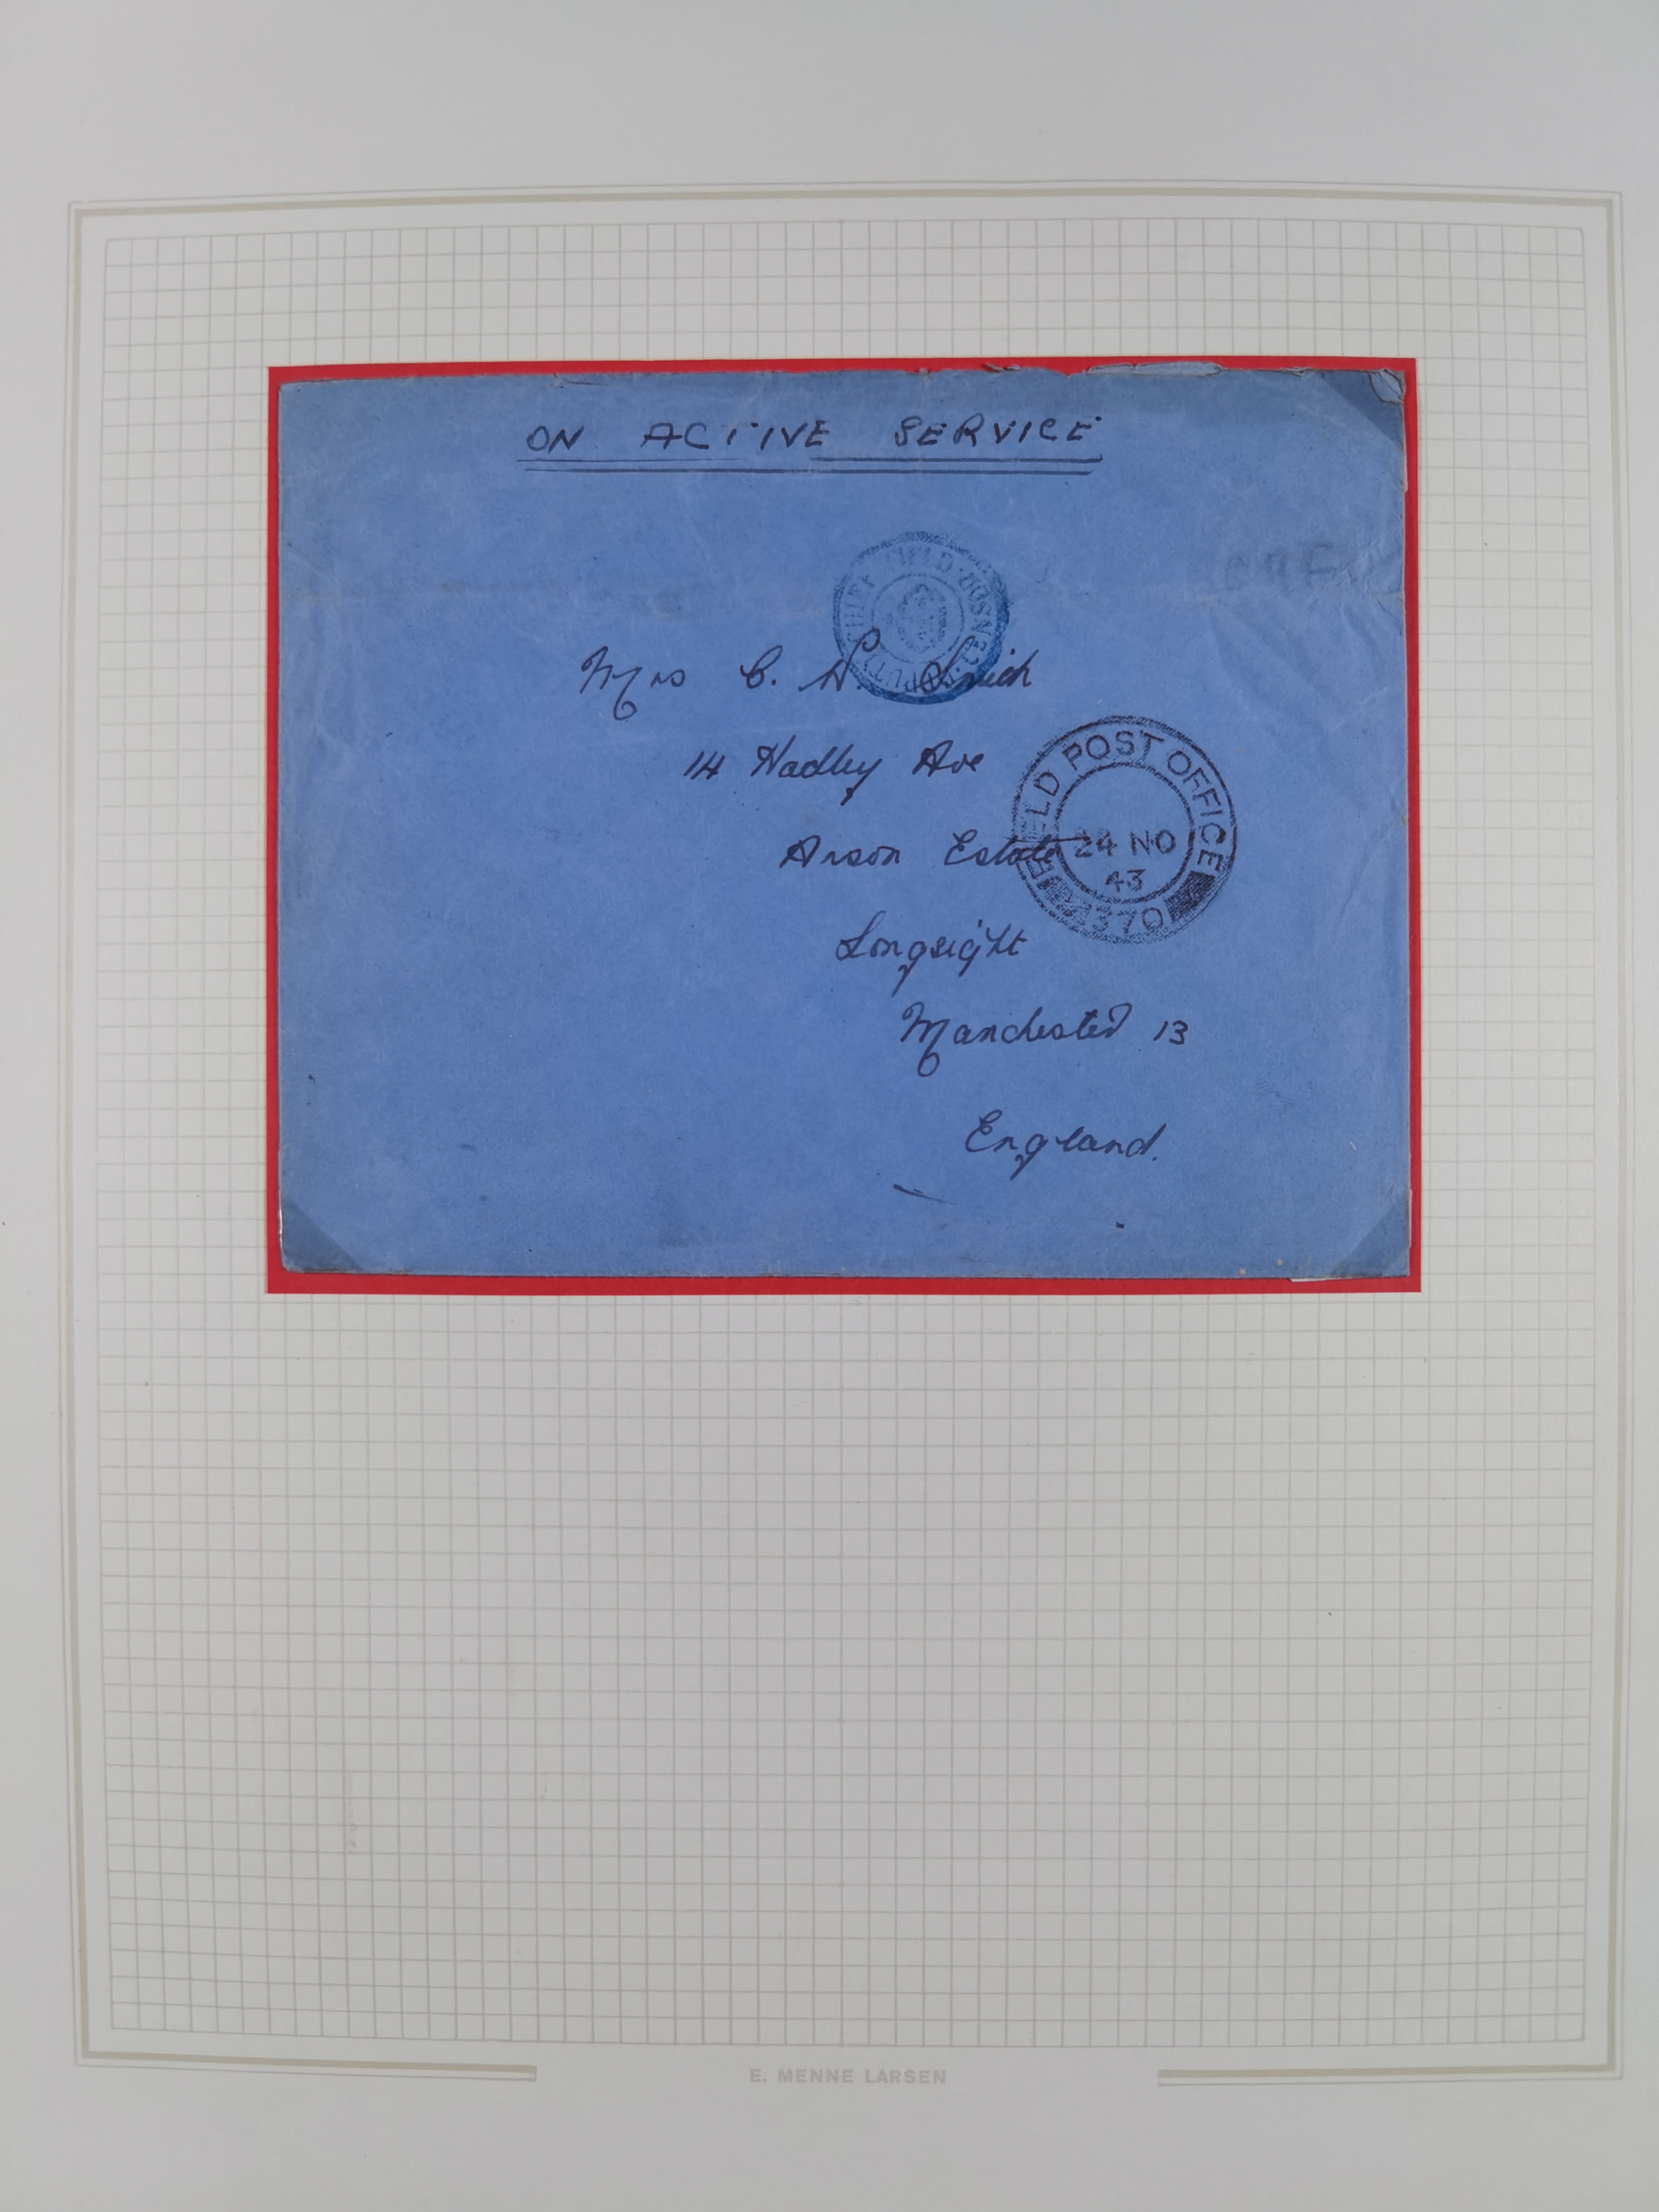 ON ACTIVE SERVICE
DEPUTY CHIEF FIELD CENSOR
Mrs C. H. Smith
14 Hadley Ave
Anson Estate
Longsight
Manchester 13
England.
FIELD POST OFFICE
24 NO
43
370
E. MENNE LARSEN